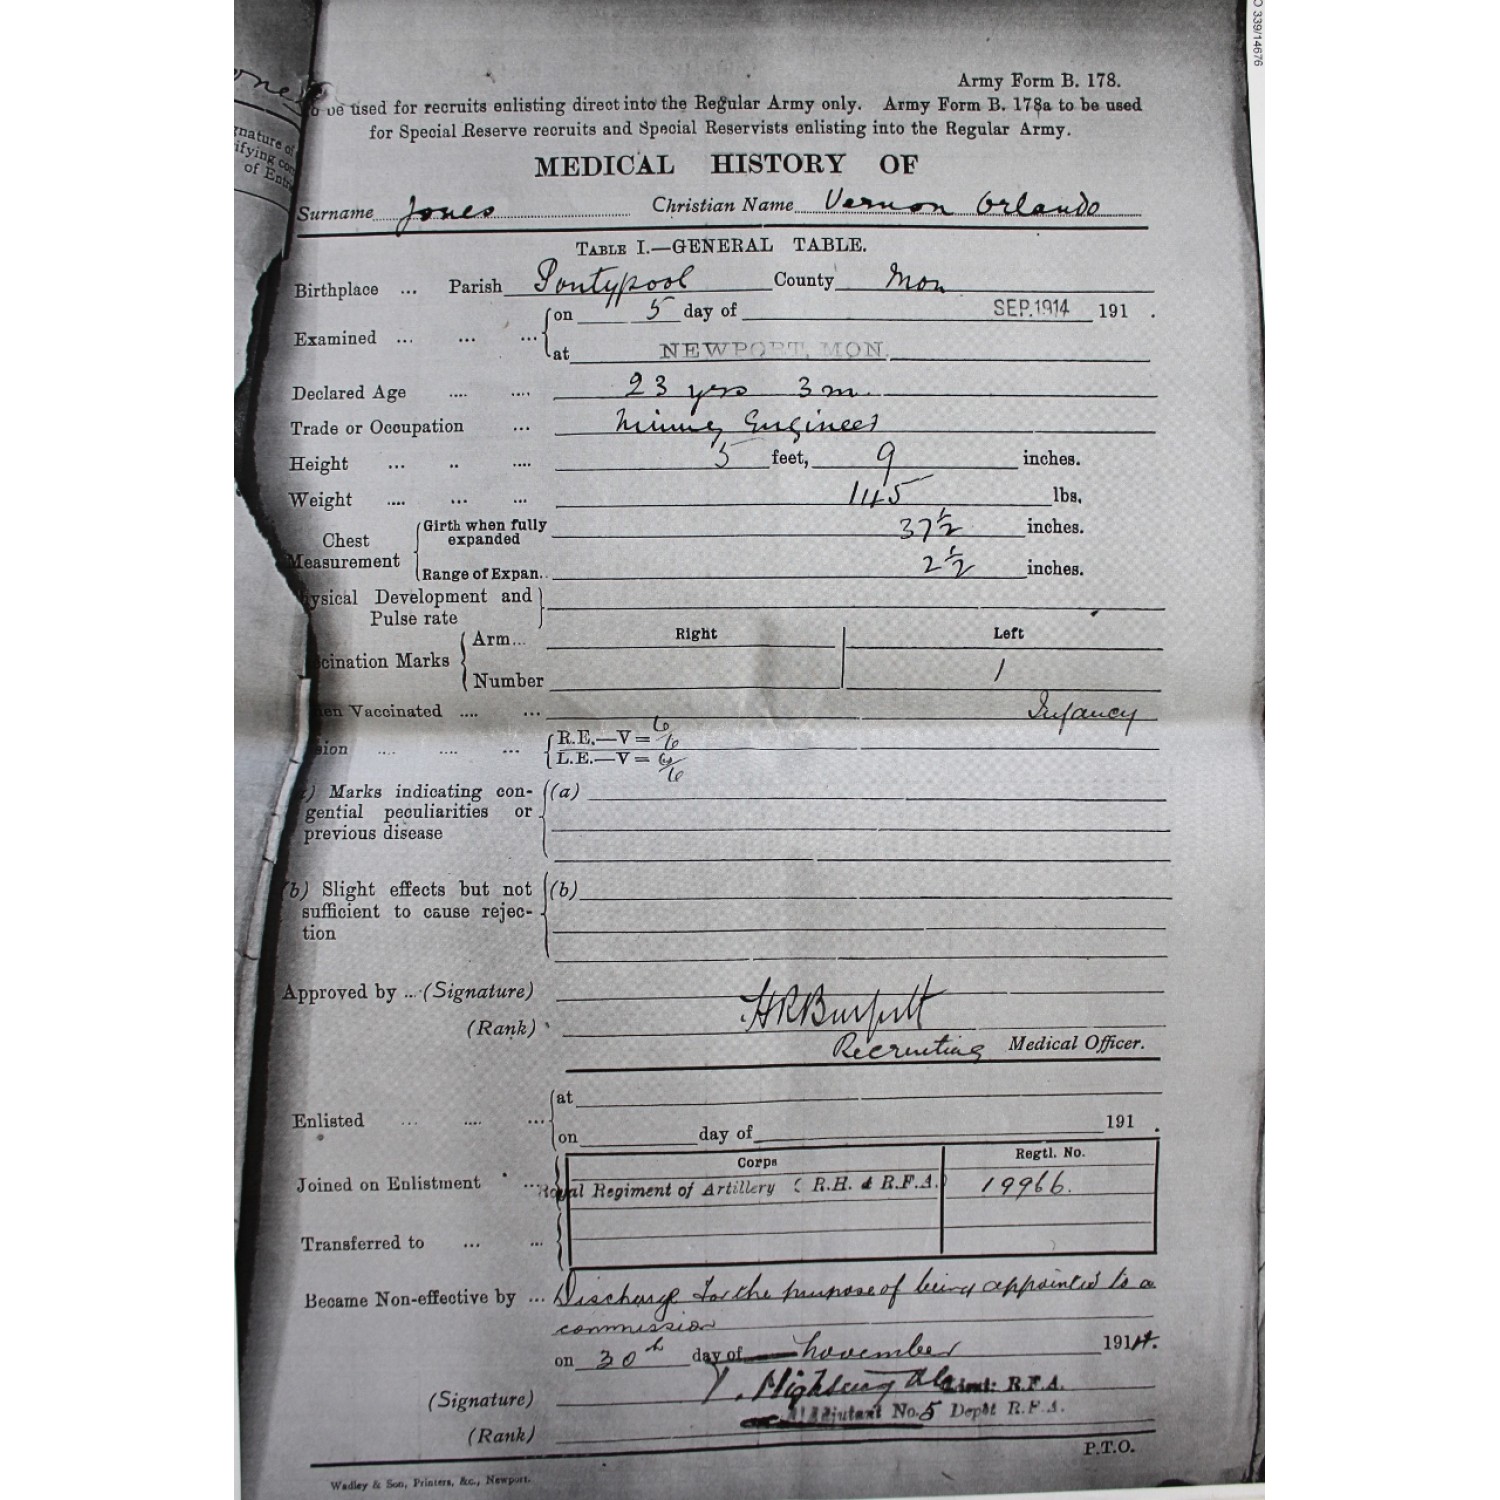 O 339/14676
Army Form B. 178.
be used for recruits enlisting direct into the Regular Army only. Army Form B. 178a to be used
for Special Reserve recruits and Special Reservists enlisting into the Regular Army.
MEDICAL HISTORY OF
Surname Jones Christian Name Vernon Orlando
TABLE I.—GENERAL TABLE.
Birthplace ... Parish Pontypool County Mon
Examined ... ... ... on 5 day of SEP. 1914 191 .
at NEWPORT, MON.
Declared Age .... .... 23 yrs 3 m.
Trade or Occupation ... Mining Engineer
Height ... .. .... 5 feet, 9 inches.
Weight .... ... ... 145 lbs.
Chest Measurement Girth when fully expanded 37 1/2 inches.
Range of Expan.. 2 1/2 inches.
ysical Development and
Pulse rate
Right Left
cination Marks Arm...
Number 1
en Vaccinated .... ... Infancy
sion .... .... ... R.E.—V = 6/6
L.E.—V = 6/6
) Marks indicating con- (a)
gential peculiarities or
previous disease
(b) Slight effects but not (b)
sufficient to cause rejec-
tion
Approved by ... (Signature) HRBurpitt
(Rank) Recruiting Medical Officer.
Enlisted ... .... ... at
on day of 191 .
Corps Regtl. No.
Joined on Enlistment ... Royal Regiment of Artillery (R.H. & R.F.A.) 19966.
Transferred to ... ...
Became Non-effective by ... Discharge for the purpose of being appointed to a
commission
on 30th day of November 1914.
(Signature) Lieut: R.F.A.
(Rank) Adjutant No. 5 Depôt R.F.A.
P.T.O.
Wadley & Son, Printers, &c., Newport.
nature of
ifying
of